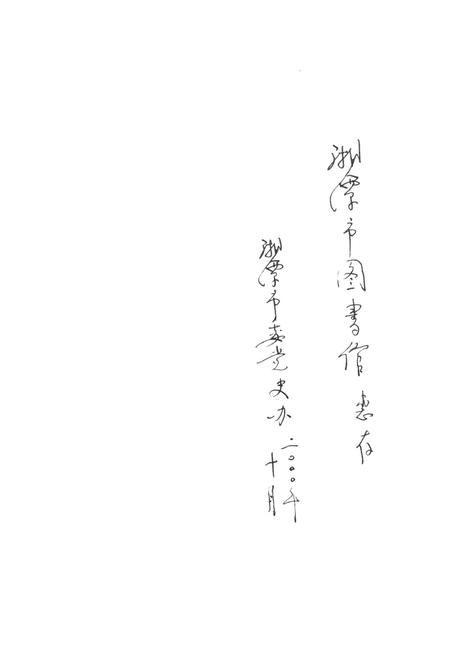 湘潭市图書馆 惠存
湘潭市委党史办
二〇〇〇年
十月